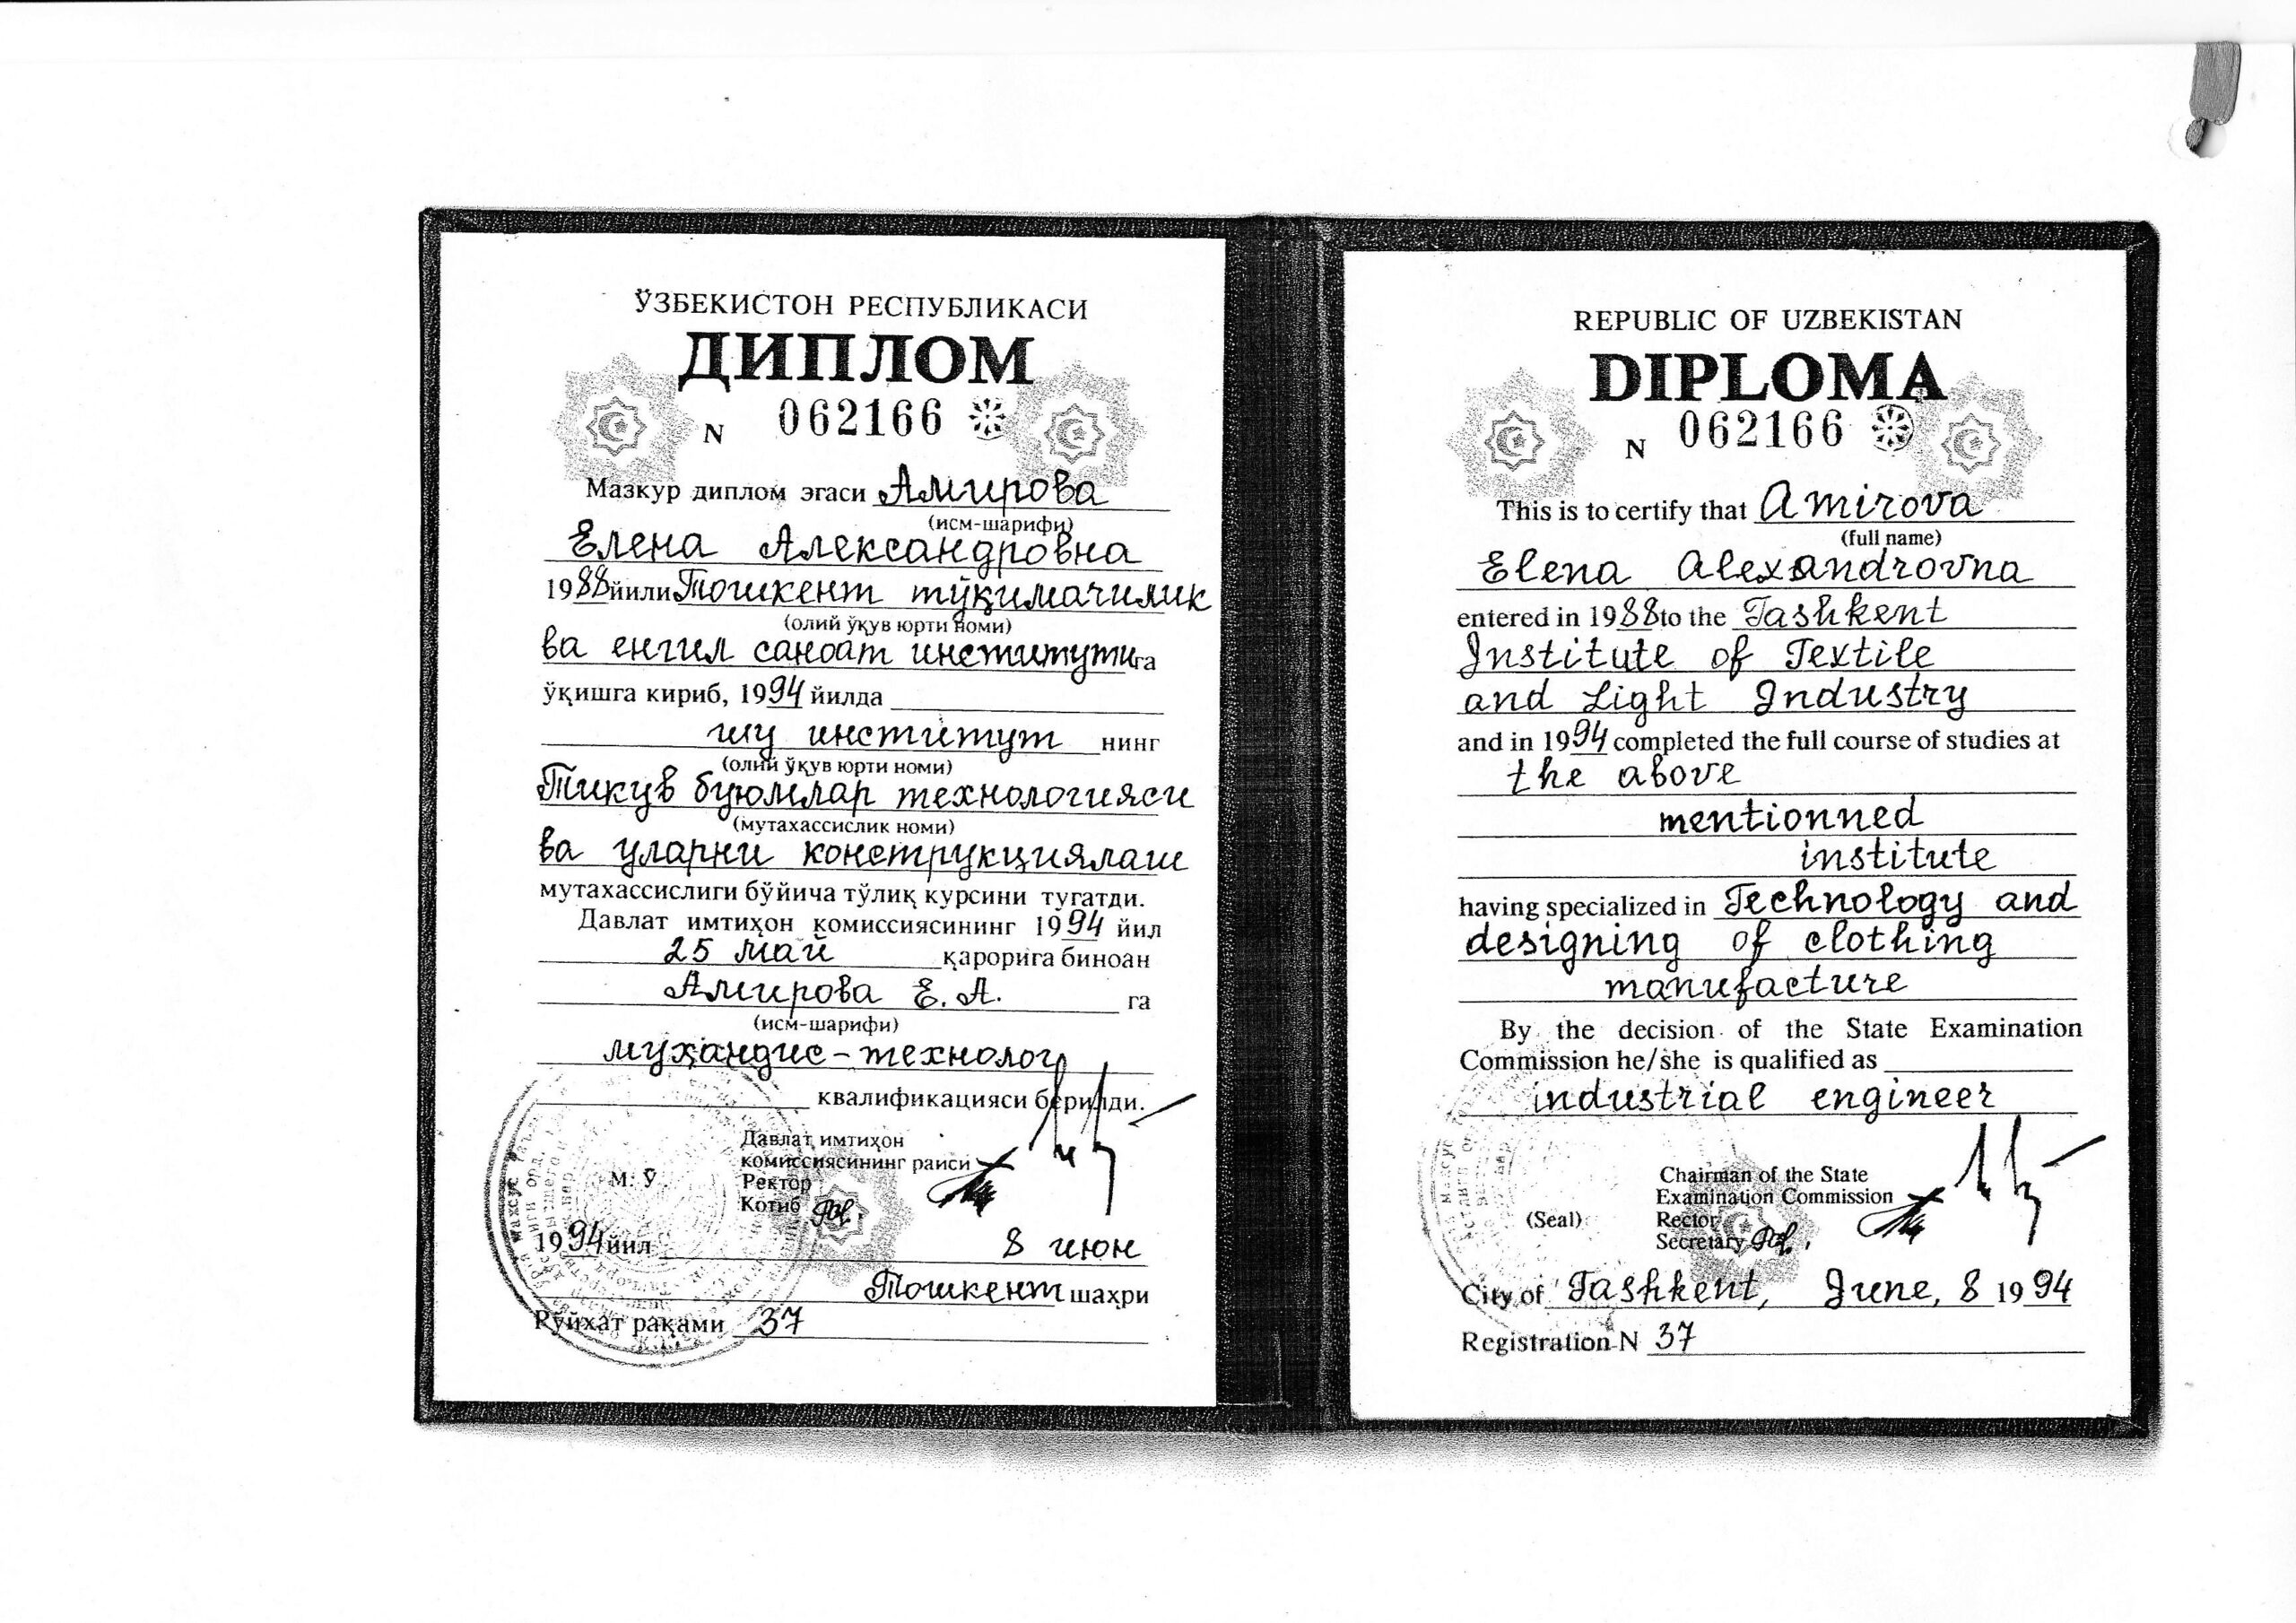 ЎЗБЕКИСТОН РЕСПУБЛИКАСИ
ДИПЛОМ
N 062166
Мазкур диплом эгаси Амирова
(исм-шарифи)
Елена Александровна
1988 йили Тошкент тўқимачилик
(олий ўқув юрти номи)
ва енгил саноат институтига
ўқишга кириб, 1994 йилда
шу институт нинг
(олий ўқув юрти номи)
Тикув буюмлар технологияси
(мутахассислик номи)
ва уларни конструкциялаш
мутахассислиги бўйича тўлиқ курсини тугатди.
Давлат имтиҳон комиссиясининг 1994 йил
25 май қарорига биноан
Амирова Е. А. га
(исм-шарифи)
муҳандис-технолог
квалификацияси берилди.
Давлат имтиҳон
комиссиясининг раиси
М. Ў.
Ректор
Котиб
1994 йил 8 июн
Тошкент шаҳри
Рўйхат рақами 37
REPUBLIC OF UZBEKISTAN
DIPLOMA
N 062166
This is to certify that Amirova
(full name)
Elena Alexandrovna
entered in 1988 to the Tashkent
Institute of Textile
and Light Industry
and in 1994 completed the full course of studies at
the above
mentionned
institute
having specialized in Technology and
designing of clothing
manufacture
By the decision of the State Examination
Commission he/she is qualified as
industrial engineer
Chairman of the State
Examination Commission
(Seal)
Rector
Secretary
City of Tashkent, June, 8 1994
Registration N 37